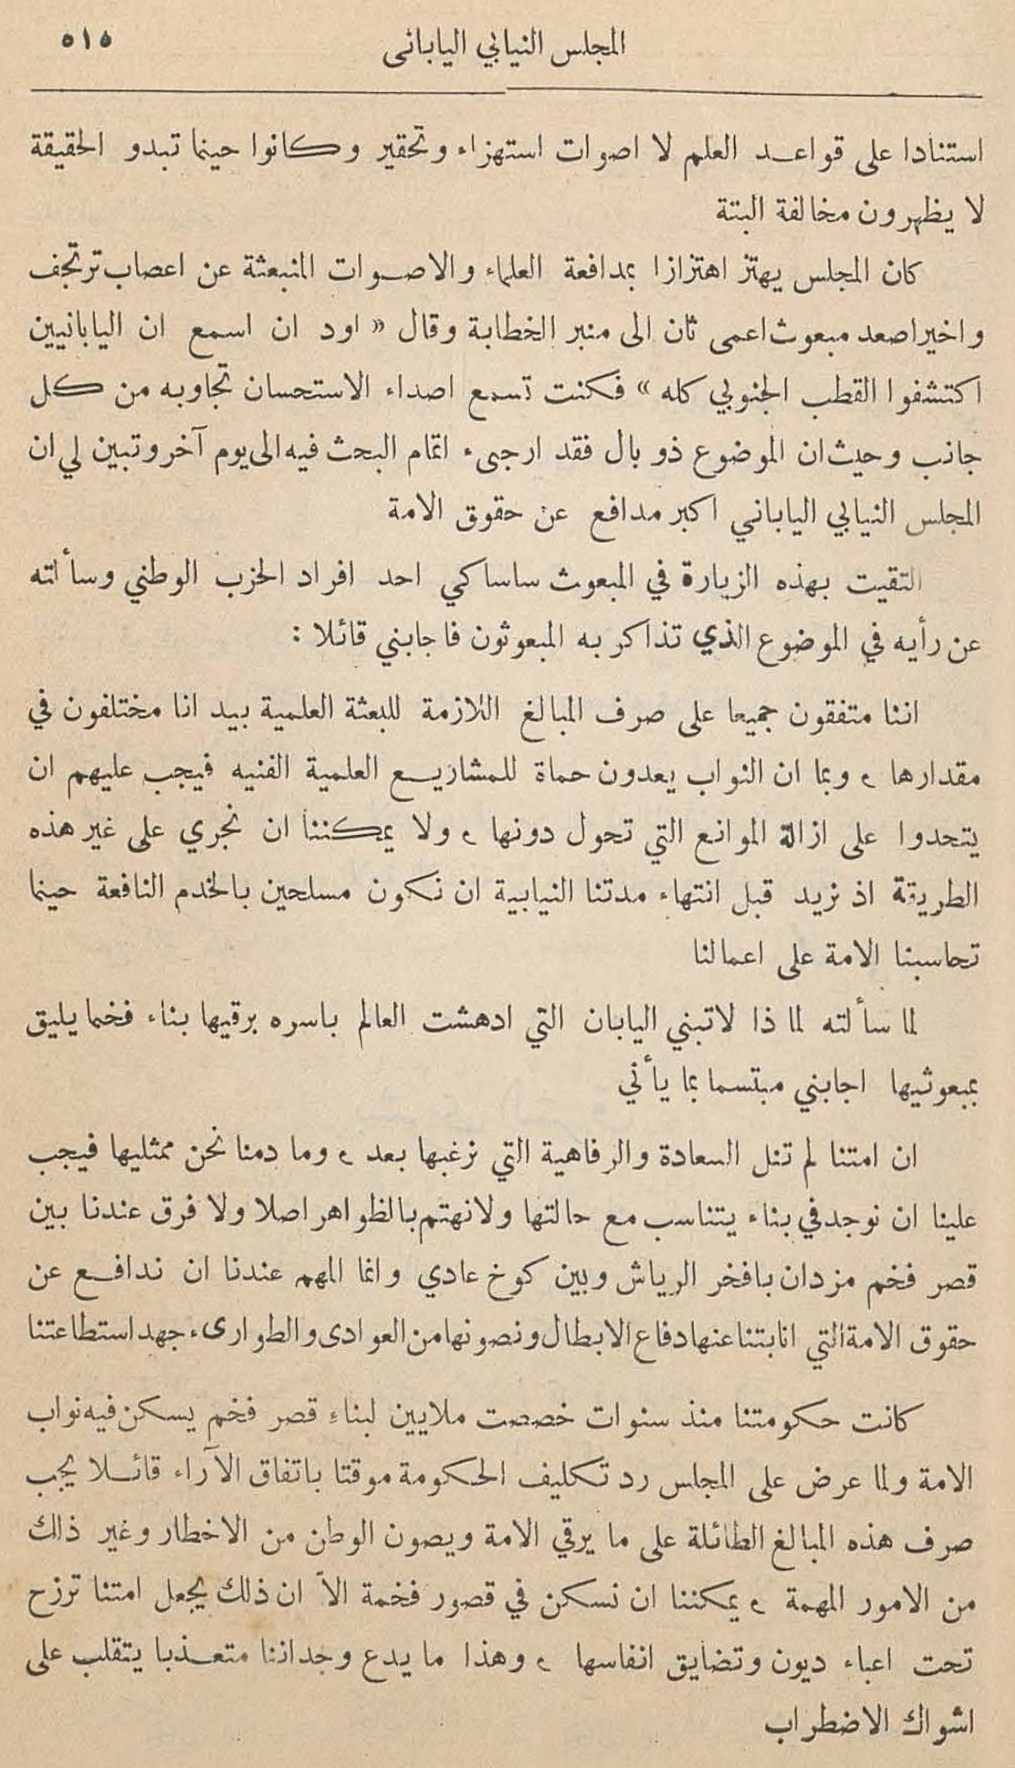 المجلس النيابي الياباني ٥١٥
استنادا على قواعد العلم لا اصوات استهزاء وتحقير وكانوا حينما تبدو الحقيقة
لا يظهرون مخالفة البتة
كان المجلس يهتز اهتزازا بمدافعة العلماء والاصوات المنبعثة عن اعصاب ترتجف
واخيرا صعد مبعوث اعمى ثان الى منبر الخطابة وقال « اود ان اسمع ان اليابانيين
اكتشفوا القطب الجنوبي كله » فكنت تسمع اصداء الاستحسان تجاوبه من كل
جانب وحيث ان الموضوع ذو بال فقد ارجىء اتمام البحث فيه الى يوم آخر وتبين لي ان
المجلس النيابي الياباني اكبر مدافع عن حقوق الامة
التقيت بهذه الزيارة في المبعوث ساساكي احد افراد الحزب الوطني وسألته
عن رأيه في الموضوع الذي تذاكر به المبعوثون فاجابني قائلا :
اننا متفقون جميعا على صرف المبالغ اللازمة للبعثة العلمية بيد انا مختلفون في
مقدارها ، وبما ان النواب يعدون حماة للمشاريع العلمية الفنيه فيجب عليهم ان
يتحدوا على ازالة الموانع التي تحول دونها ، ولا يمكننا ان نجري على غير هذه
الطريقة اذ نريد قبل انتهاء مدتنا النيابية ان نكون مسلحين بالخدم النافعة حينما
تحاسبنا الامة على اعمالنا
لما سألته لما ذا لاتبني اليابان التي ادهشت العالم باسره برقيها بناء فخما يليق
بمبعوثيها اجابني مبتسما بما يأتي
ان امتنا لم تنل السعادة والرفاهية التي نرغبها بعد ، وما دمنا نحن ممثليها فيجب
علينا ان نوجد في بناء يتناسب مع حالتها ولا نهتم بالظواهر اصلا ولا فرق عندنا بين
قصر فخم مزدان بافخر الرياش وبين كوخ عادي وانما المهم عندنا ان ندافع عن
حقوق الامة التي انابتنا عنها دفاع الابطال ونصونها من العوادى والطوارىء جهد استطاعتنا
كانت حكومتنا منذ سنوات خصصت ملايين لبناءِ قصر فخم يسكن فيه نواب
الامة ولما عرض على المجلس رد تكليف الحكومة موقتا باتفاق الآراء قائلا يجب
صرف هذه المبالغ الطائلة على ما يرقي الامة ويصون الوطن من الاخطار وغير ذلك
من الامور المهمة ، يمكننا ان نسكن في قصور فخمة الاّ ان ذلك يجعل امتنا ترزح
تحت اعباء ديون وتضايق انفاسها ، وهذا ما يدع وجداننا متعذبا يتقلب على
اشواك الاضطراب